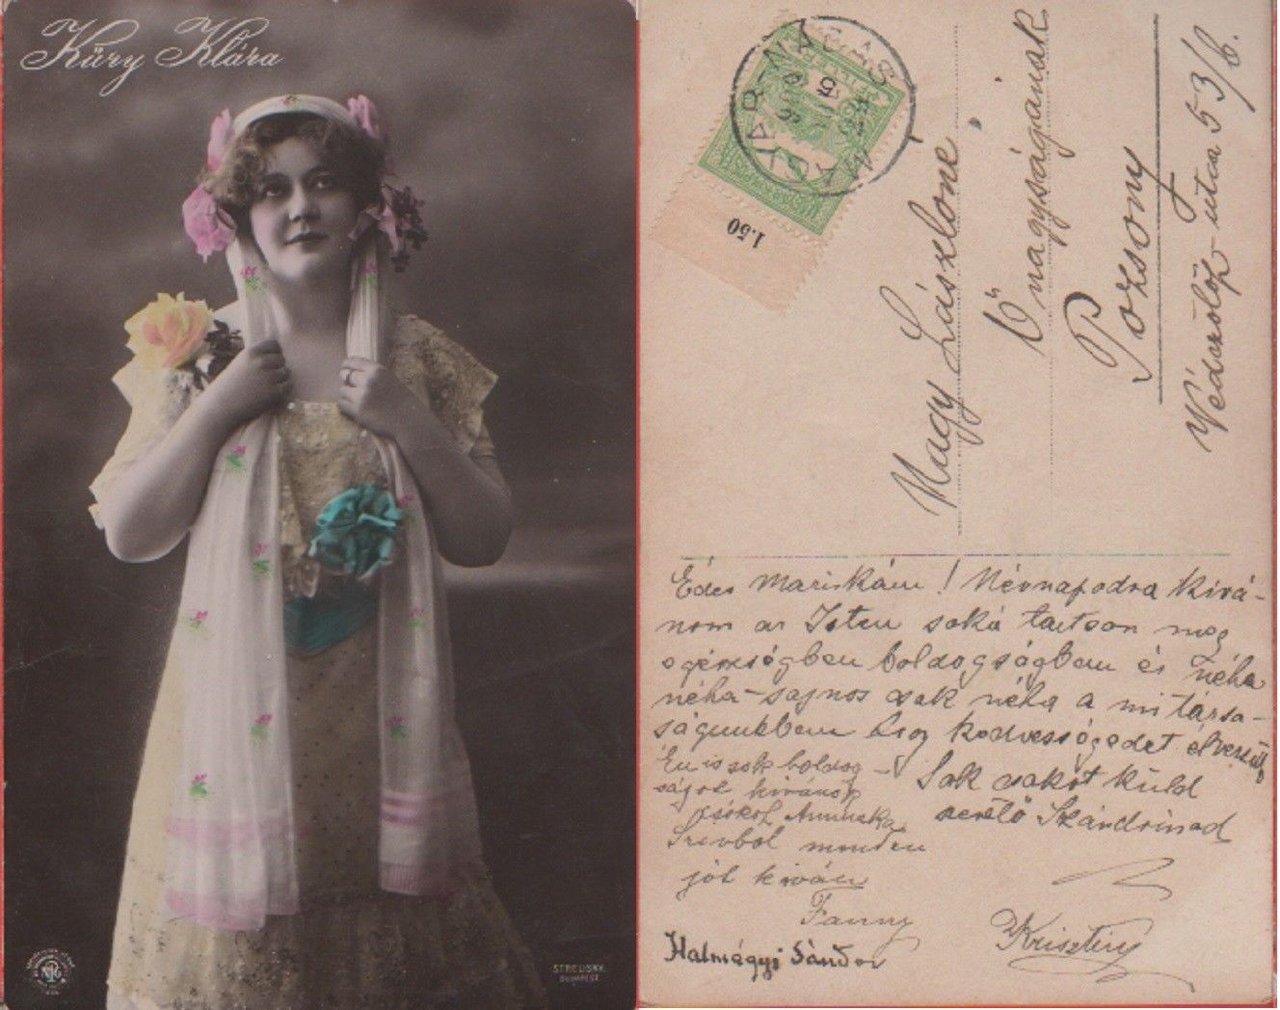 Küry Klára
STRELISKY
BUDAPEST
1.50
Nagy Lászlóné
Ő nagyságának
Pozsony
Védcölöp utca 53/b.
Édes Mariskám! Névnapodra kívá-
nom az Isten soká tartson meg
egészségben boldogságban és néha
néha - sajnos csak néha a mi társa-
ságunkban hogy kedvességedet élvezzük
Sok csókot küld
szerető Szándrinod
Én is sok boldog-
ságot kívánok
csókol Annuska
Szivből minden
jót kíván
Fanny
Krisztiny
Halmágyi Sándor